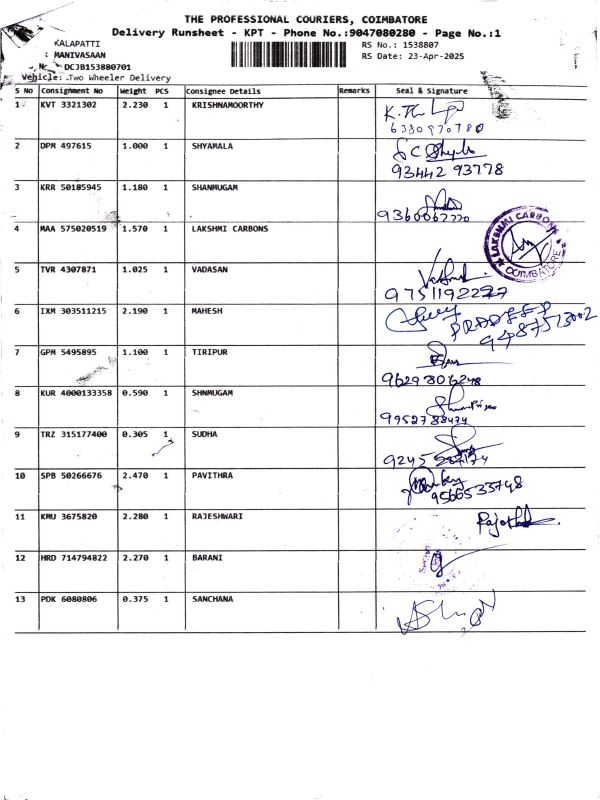 THE PROFESSIONAL COURIERS, COIMBATORE
Delivery Runsheet - KPT - Phone No.:9047080280 - Page No.:1
KALAPATTI
: MANIVASAAN
RS No.: 1538807
DCJB153880701
RS Date: 23-Apr-2025
Vehicle: Two Wheeler Delivery
S No Consignment No Weight PCS Consignee Details Remarks Seal & Signature
1 KVT 3321302 2.230 1 KRISHNAMOORTHY
6380970780
2 DPM 497615 1.000 1 SHYAMALA
93442 93778
3 KRR 50185945 1.180 1 SHANMUGAM
4 MAA 575020519 1.570 1 LAKSHMI CARBONS
LAKSHMI CARBONS
COIMBATORE
5 TVR 4307871 1.025 1 VADASAN
9751192227
6 IXM 303511215 2.190 1 MAHESH
PRADEEP
9487573002
7 GPM 5495895 1.100 1 TIRIPUR
8 KUR 4000133358 0.590 1 SHNMUGAM
9952788474
9 TRZ 315177400 0.305 1 SUDHA
9245
10 SPB 50266676 2.470 1 PAVITHRA
9566533748
11 KMU 3675820 2.280 1 RAJESHWARI
12 HRD 714794822 2.270 1 BARANI
13 PDK 6080806 0.375 1 SANCHANA